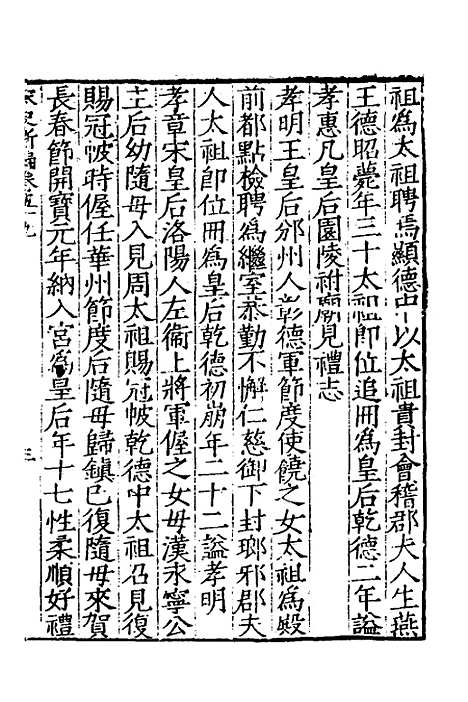 祖爲太祖聘焉顯德中以太祖貴封會稽郡夫人生燕
王德昭薨年三十太祖即位追冊爲皇后乾德二年謚
孝惠凡皇后園陵祔廟見禮志
孝明王皇后邠州人彰德軍節度使饒之女太祖爲殿
前都點檢聘爲繼室恭勤不懈仁慈御下封瑯邪郡夫
人太祖即位冊爲皇后乾德初崩年二十二謚孝明
孝章宋皇后洛陽人左衞上將軍偓之女母漢永寧公
主后幼隨母入見周太祖賜冠帔乾德中太祖召見復
賜冠帔時偓任華州節度后隨母歸鎮已復隨母來賀
長春節開寶元年納入宮爲皇后年十七性柔順好禮
宋史新編卷五十九
三